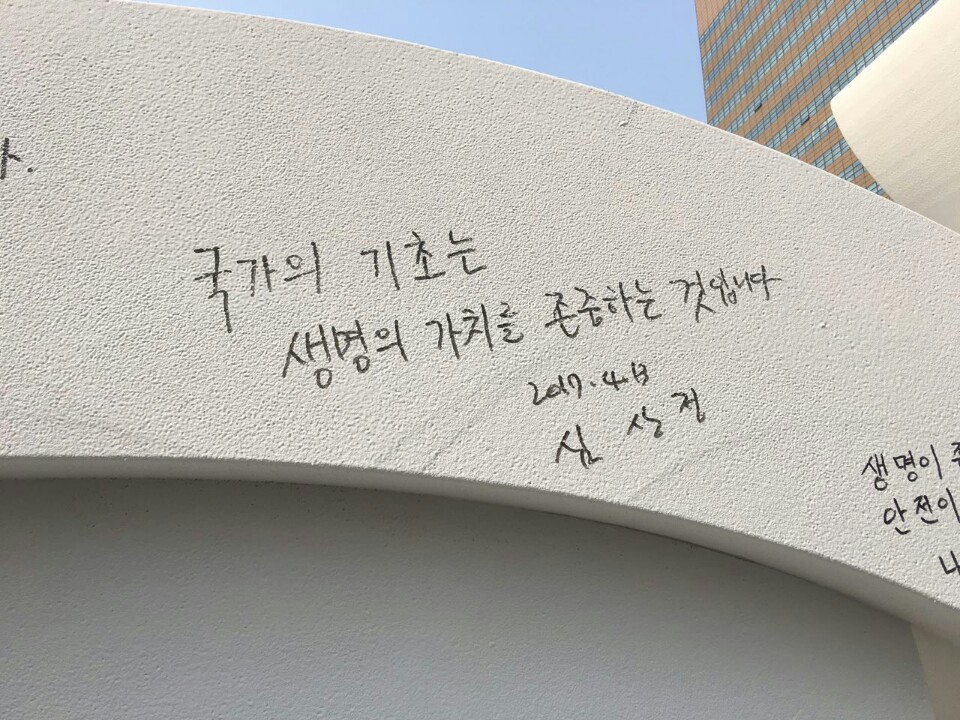 국가의 기초는
생명의 가치를 존중하는 것입니다
2017. 4. 13
심 상 정
생명이
안전이